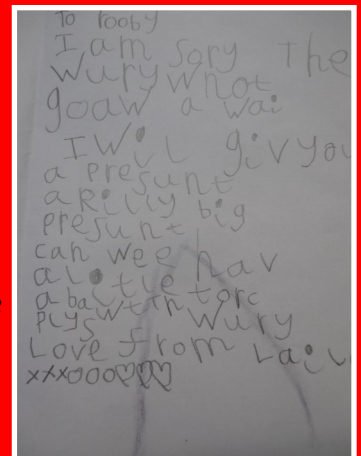 To rooby
I am sory The
wury wnot
goaw a wai
I wil giv you
a presunt
a rilly big
presunt
can wee hav
a lotle
a ba wth torc
plys wury
Love from Lail
xxxooo♡♡♡